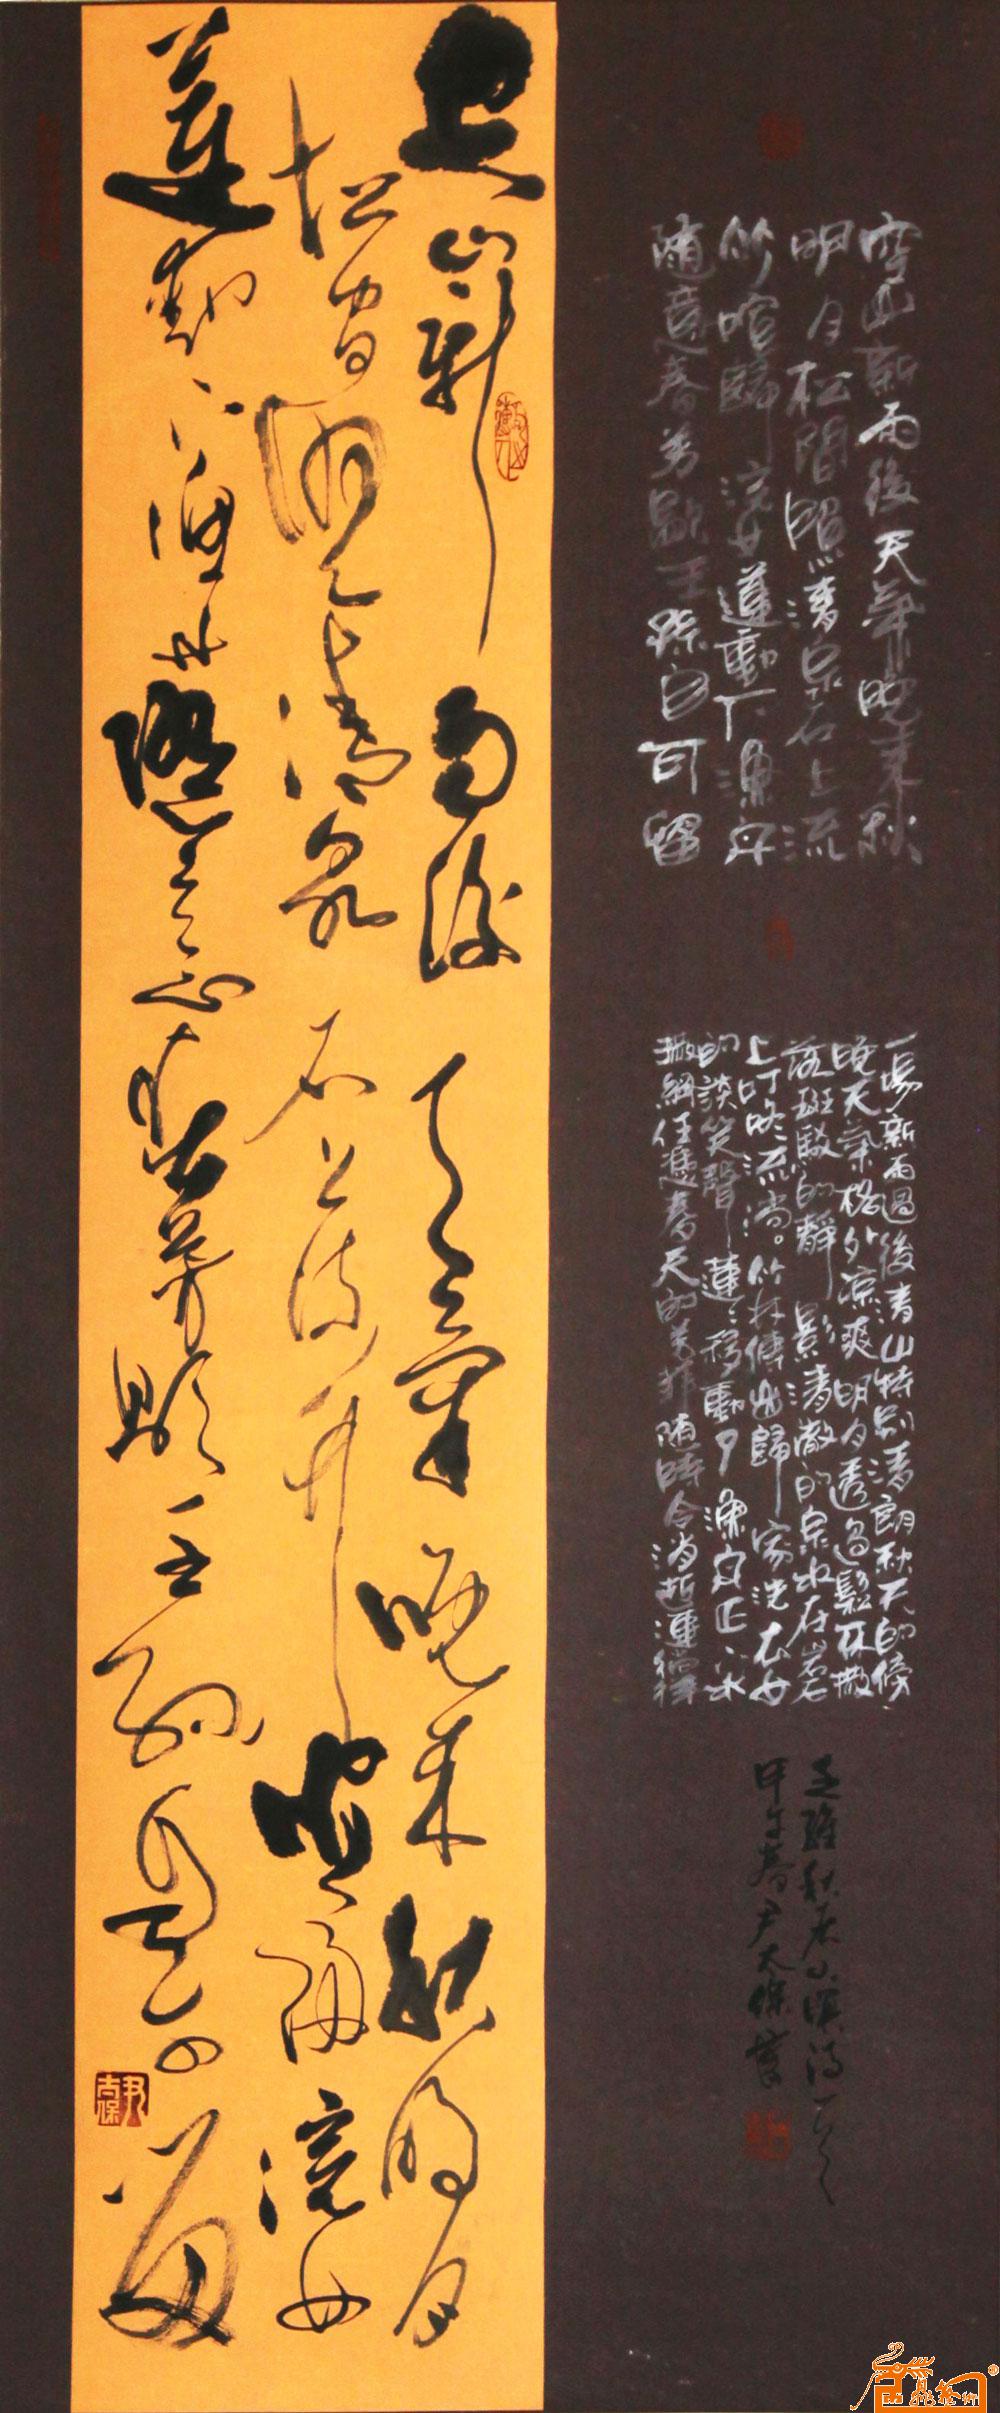 空山新雨後天氣晚來秋
明月松間照清泉石上流
竹喧歸浣女蓮動下漁舟
随意春芳歇王孫自可留
一場新雨過後青山特别清朗秋天的傍
晚天氣格外凉爽明月透过鬆林撒
落斑駁的静影清澈的泉水在岩石
上叮咚流淌。竹林傳出歸家洗衣女
的談笑聲蓮蓮移動了漁舟正下水
撒網任憑春天的芳菲随時令消逝
王維秋
甲午春尹天保書
空山新雨後天氣晚來秋明月
松間照清泉石上流竹喧歸浣女
蓮動下漁舟隨意春芳歇王孫自可留